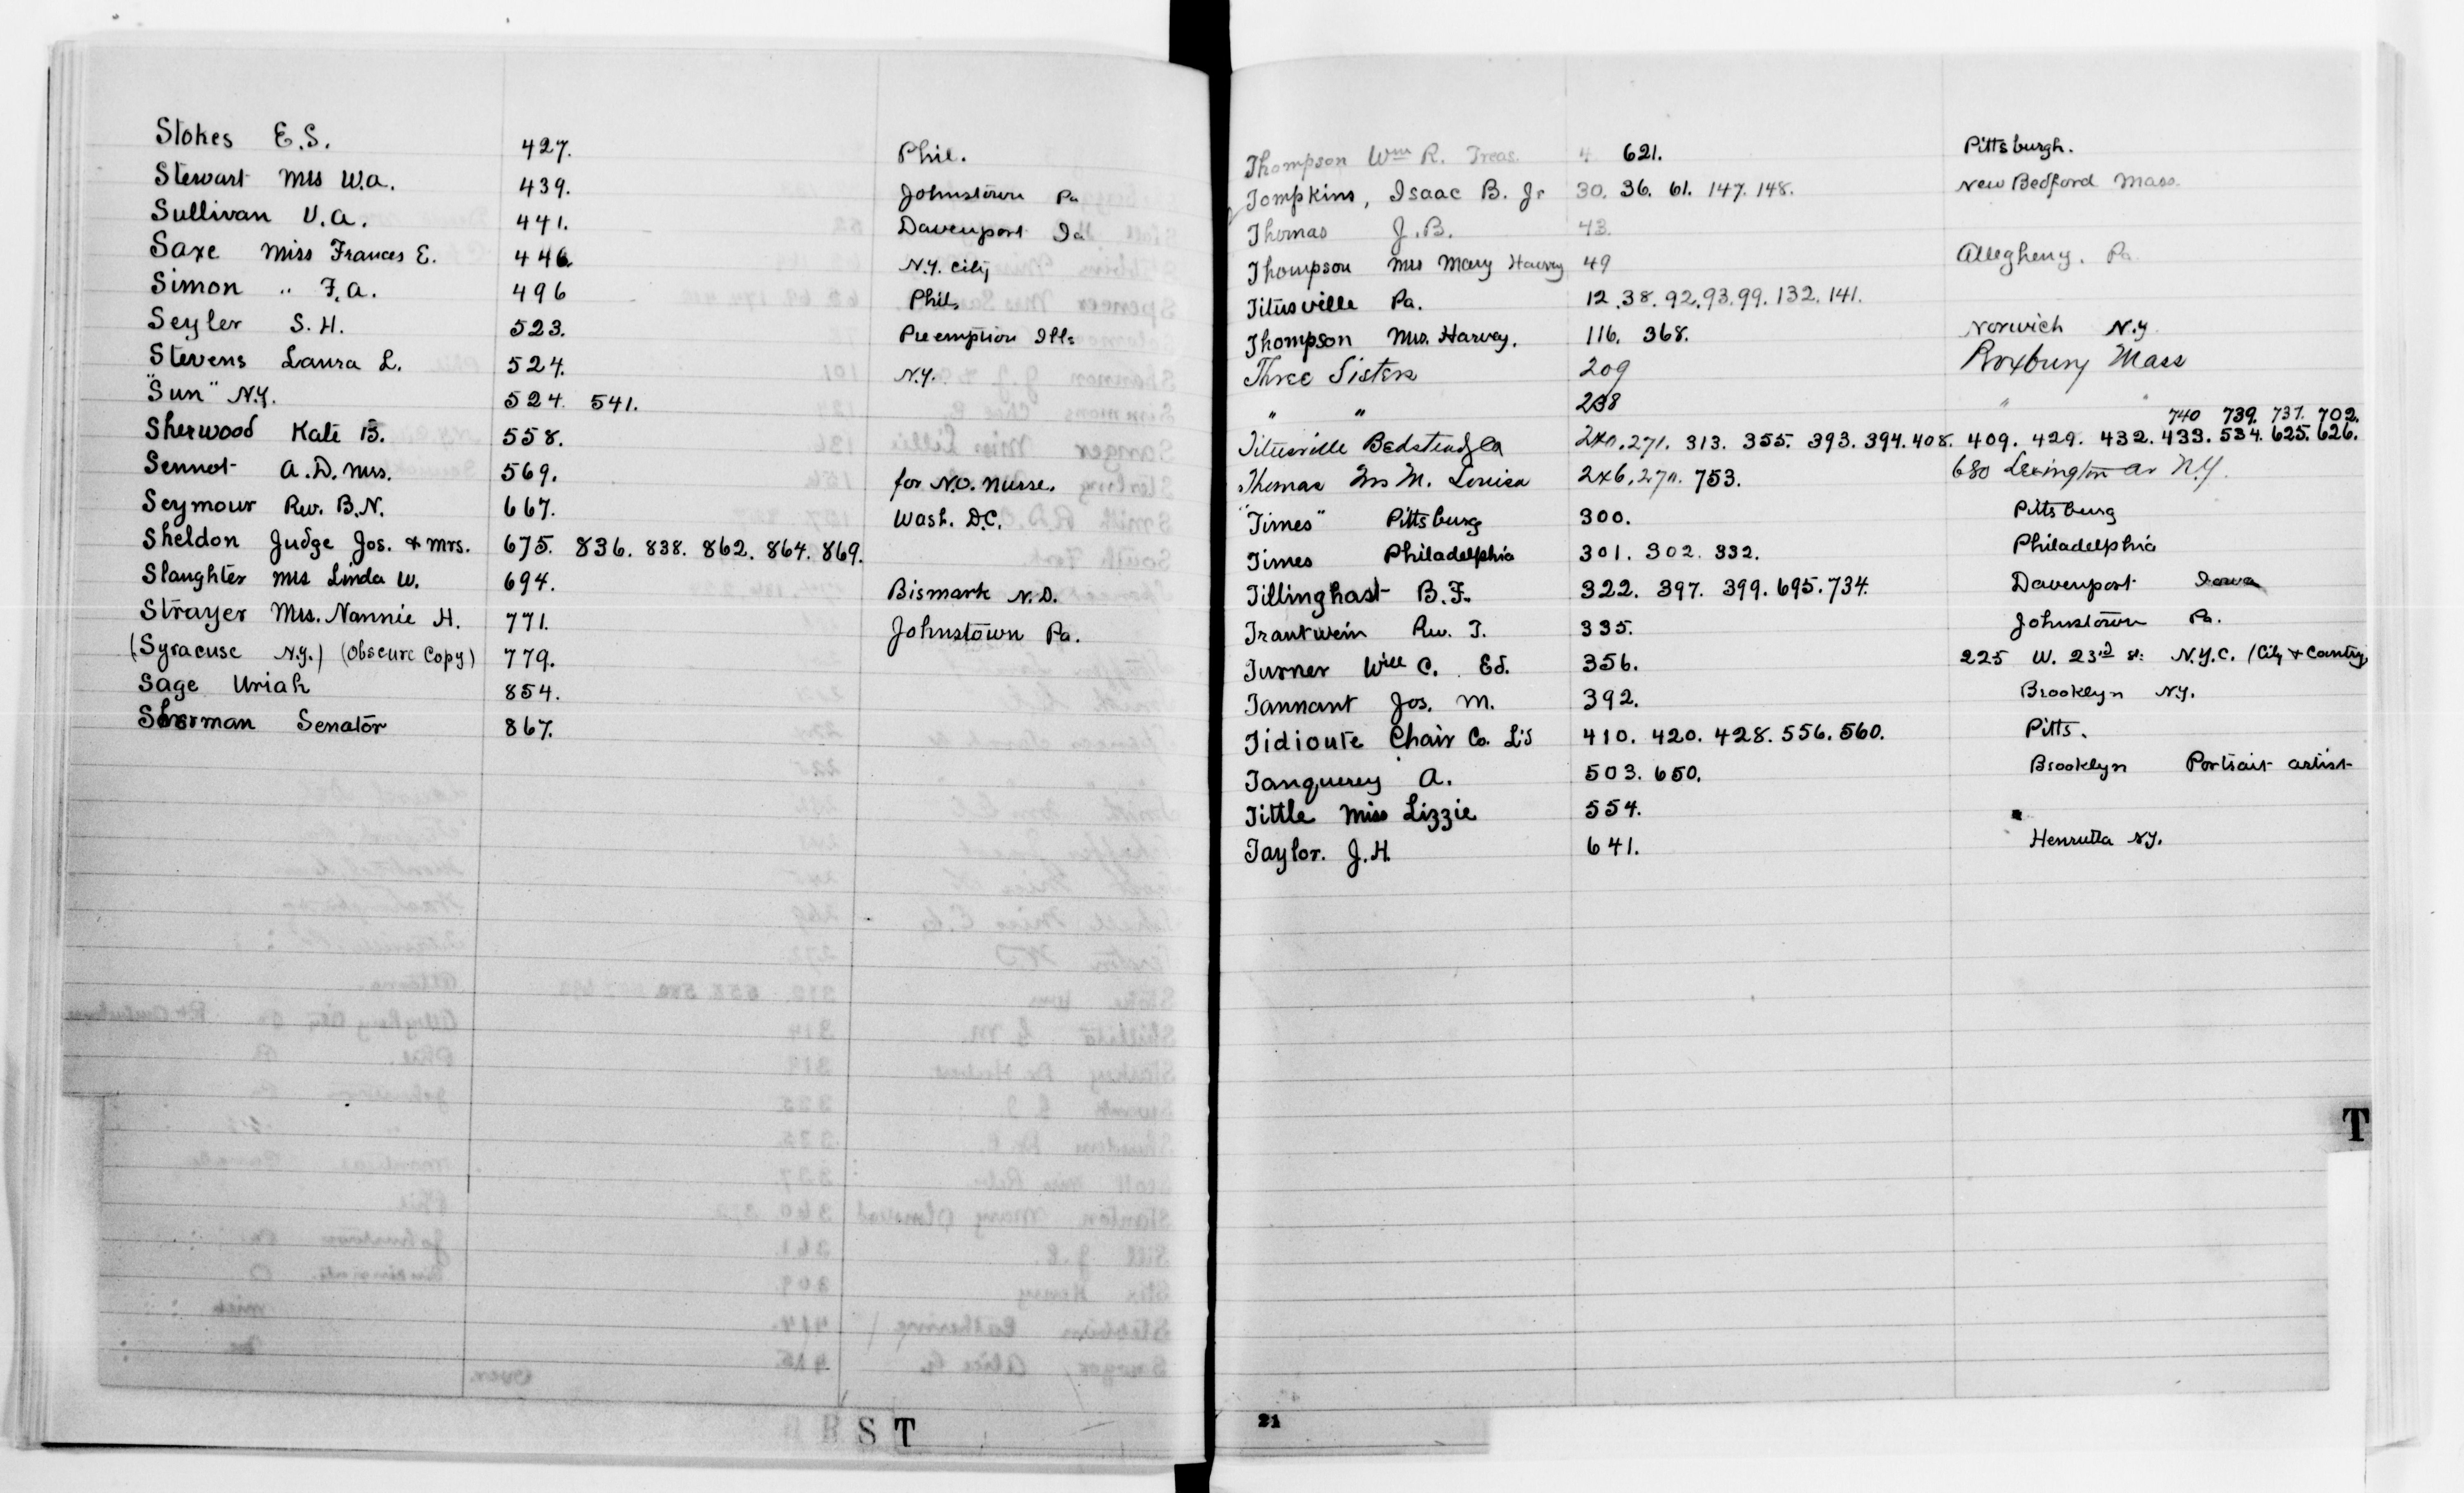 Stokes E.S. 427. Phil.
Stewart Mrs W.A. 439. Johnstown Pa
Sullivan V.A. 441. Davenport Ia
Saxe Miss Frances E. 446. N.Y. City
Simon " F.A. 496 Phil.
Seyler S.H. 523. Preemption Ills
Stevens Laura L. 524. N.Y.
"Sun" N.Y. 524. 541.
Sherwood Kate B. 558.
Sennot A.D. Mrs. 569. for N.O. Nurse.
Seymour Rev. B.N. 667. Wash. D.C.
Sheldon Judge Jos. & Mrs. 675. 836. 838. 862. 864. 869.
Slaughter Mrs Linda W. 694. Bismark N.D.
Strayer Mrs. Nannie H. 771. Johnstown Pa.
(Syracuse N.Y.) (Obscure Copy) 779.
Sage Uriah 854.
Sherman Senator 867.
R S T
Thompson Wm R. Treas. 4 621. Pittsburgh.
Tompkins, Isaac B. Jr 30. 36. 61. 147. 148. New Bedford Mass.
Thomas J.B. 43.
Thompson Mrs Mary Harvey 49 Allegheny. Pa
Titusville Pa. 12. 38. 92. 93. 99. 132. 141.
Thompson Mrs. Harvey. 116. 368. Norwich N.Y.
Three Sisters 209 Roxbury Mass
" " 238 " "
740 739. 737. 702.
Titusville Bedstead Co 240. 271. 313. 355. 393. 394. 408. 409. 429. 432. 433. 534. 625. 626.
Thomas Mrs M. Louisa 246. 270. 753. 680 Lexington Av N.Y.
"Times" Pittsburg 300. Pittsburg
Times Philadelphia 301. 302. 332. Philadelphia
Tillinghast B.F. 322. 397. 399. 695. 734. Davenport Iowa
Trautwein Rev. T. 335. Johnstown Pa.
Turner Will C. Ed. 356. 225 W. 23rd St. N.Y.C. (City & Country
Tannant Jos. M. 392. Brooklyn N.Y.
Tidioute Chair Co. L'd 410. 420. 428. 556. 560. Pitts.
Tanquerey A. 503. 650. Brooklyn Portrait artist
Tittle Miss Lizzie 554. "
Taylor. J.H. 641. Henrietta N.Y.
T
21